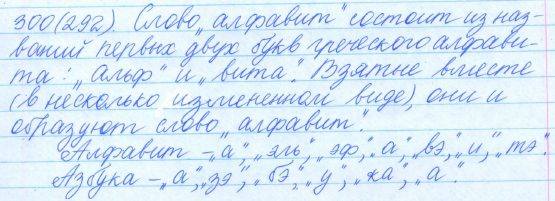 300(292). Слово „алфавит" состоит из наз-
ваний первых двух букв греческого алфави-
та: „альф" и „вита". Взятые вместе
(в несколько измененном виде), они и
образуют слово „алфавит".
Алфавит – „а", „эль", „эф", „а", „вэ", „и", „тэ".
Азбука – „а", „зэ", „бэ", „у", „ка", „а".